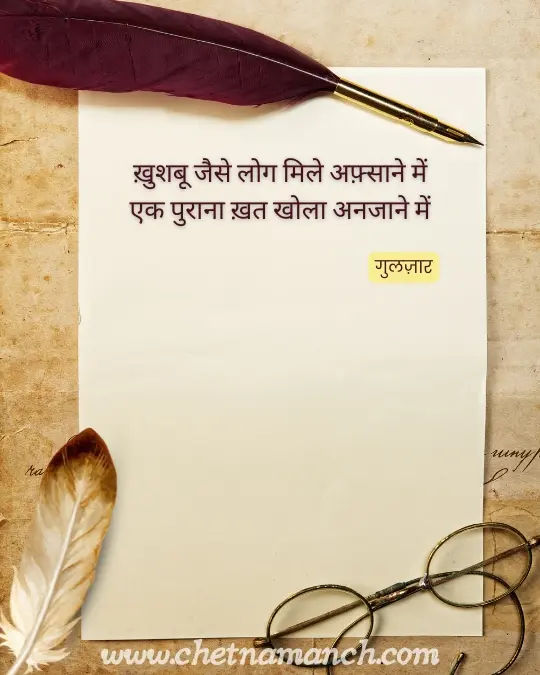 ख़ुशबू जैसे लोग मिले अफ़्साने में
एक पुराना ख़त खोला अनजाने में
गुलज़ार
www.chetnamanch.com